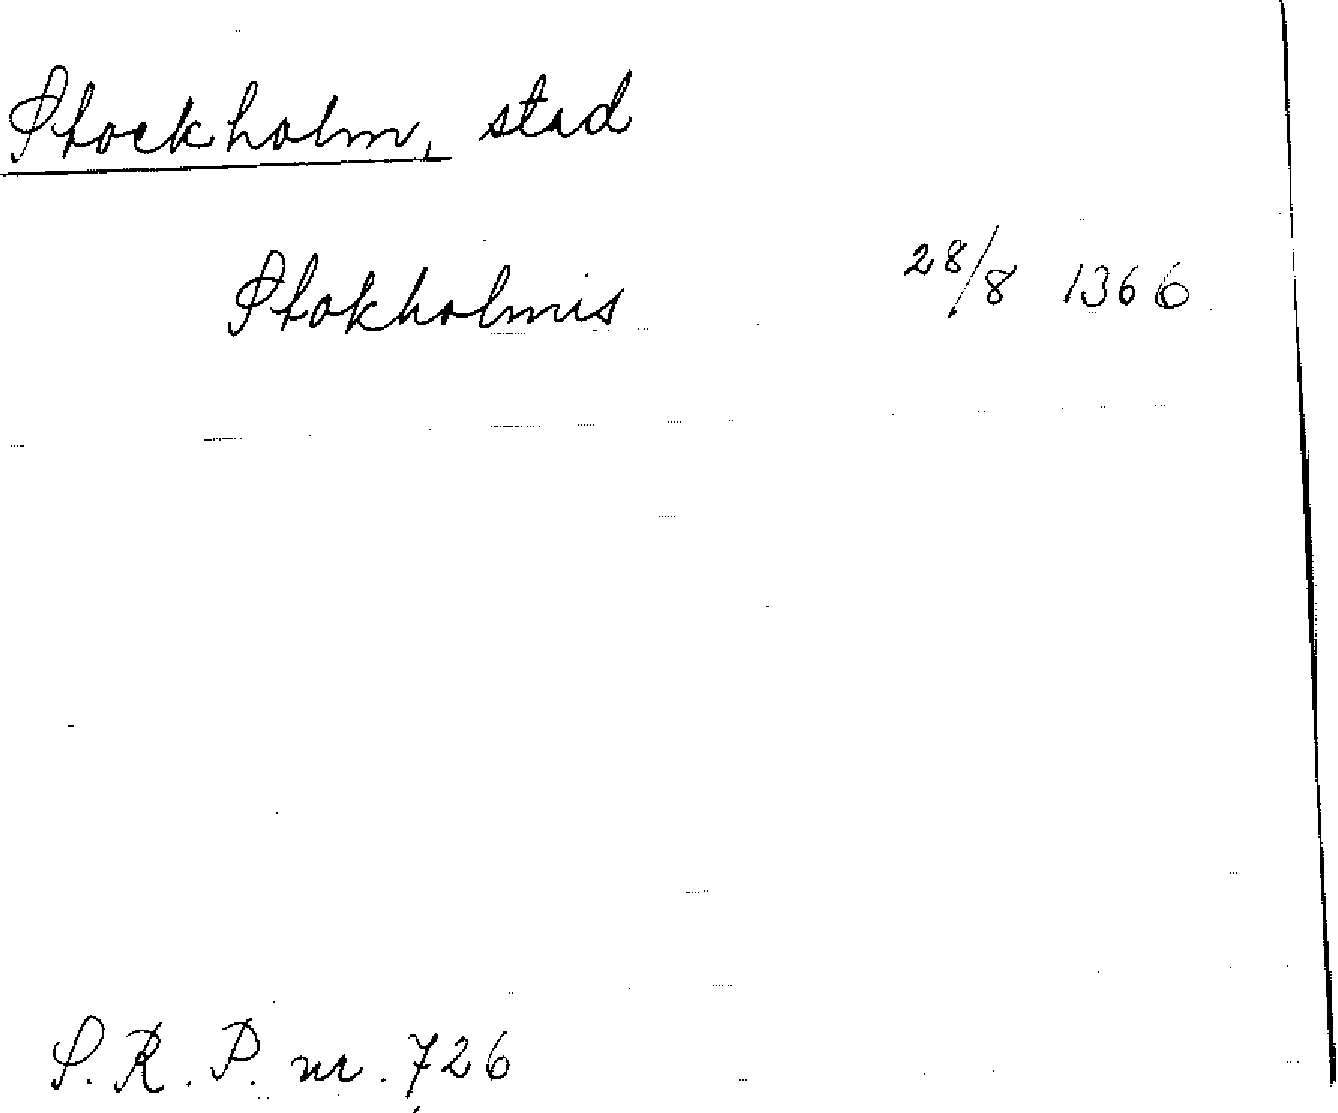 Stockholm, stad
Stokholmis 28/8 1366
S.R.P. nr. 726